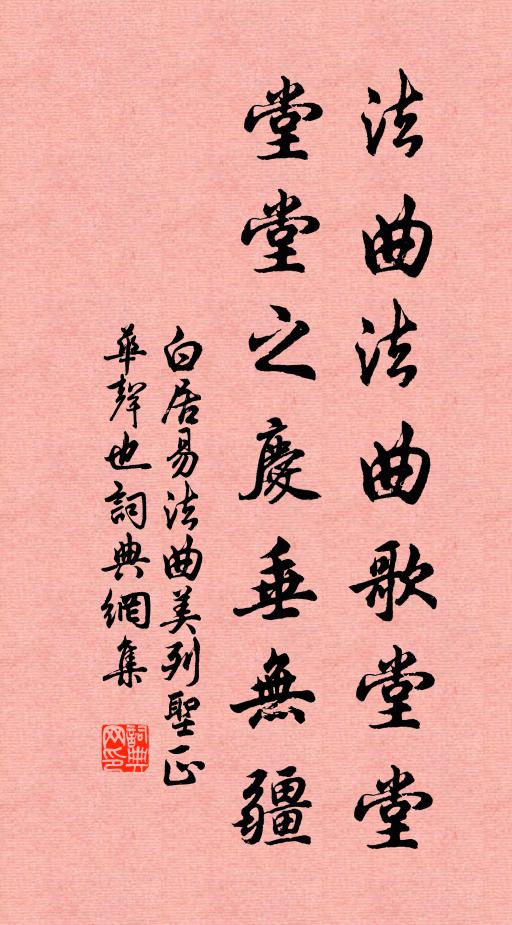 法曲法曲歌堂堂
堂堂之慶垂無疆
白居易法曲美列聖正
華聲也詞典網集
詞典網印